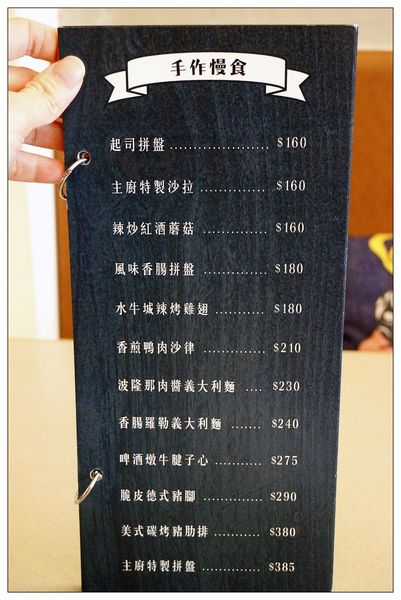 手作慢食
起司拼盤 ..................... $160
主廚特製沙拉 .............. $160
辣炒紅酒蘑菇 .............. $160
風味香腸拼盤 .............. $180
水牛城辣烤雞翅 ........... $180
香煎鴨肉沙律 ............. $210
波隆那肉醬義大利麵 .... $230
香腸羅勒義大利麵 ....... $240
啤酒燉牛腱子心 .......... $275
脆皮德式豬腳 ............. $290
美式碳烤豬肋排 ........... $380
主廚特製拼盤 .............. $385